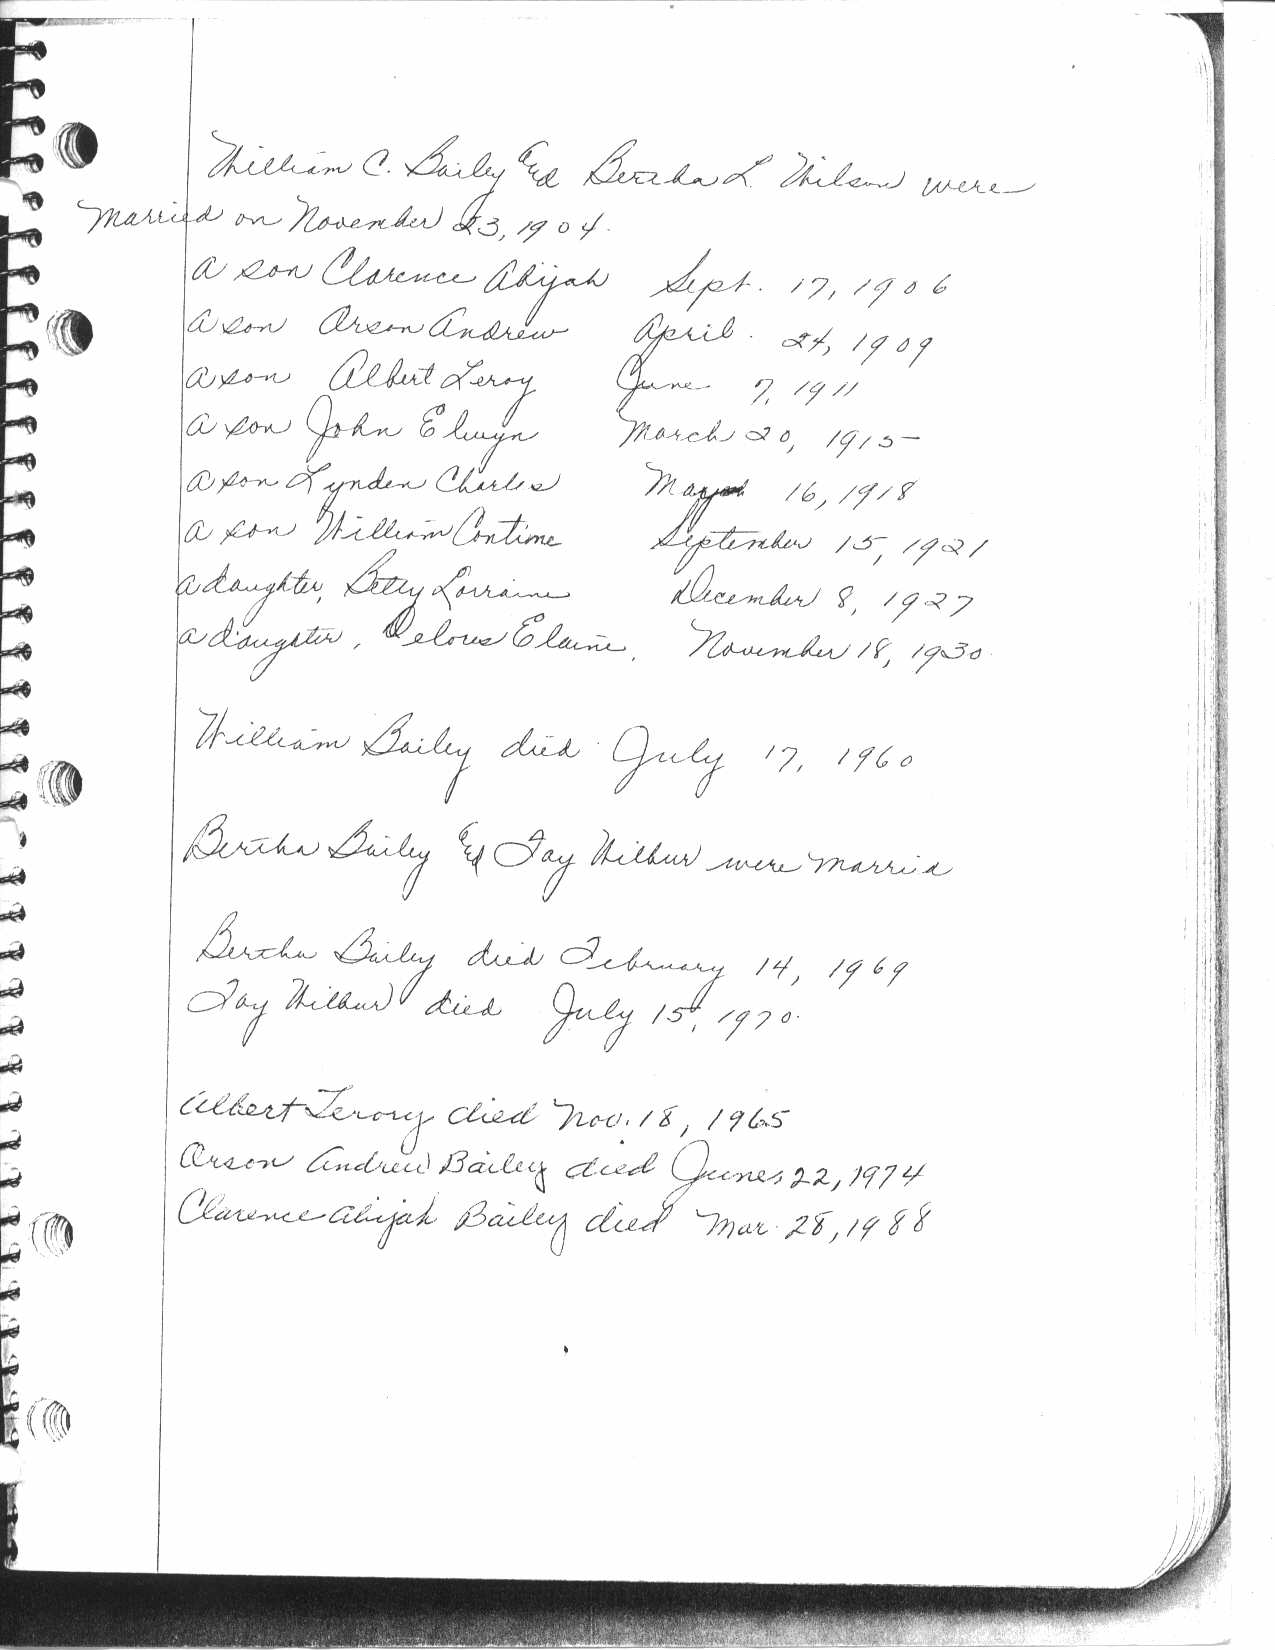 William C. Bailey And Bertha L. Wilson were
Married on November 23, 1904.
a son Clarence Abijah Sept. 17, 1906
a son Orson Andrew April. 24, 1909
a son Albert Leroy June 7, 1911
a son John Elwyn March 20, 1915
a son Lynden Charles May 16, 1918
a son William Contime September 15, 1921
a daughter, Betty Lorraine December 8, 1927
a daughter, Delores Elaine, November 18, 1930.
William Bailey died July 17, 1960
Bertha Bailey And Fay Wilbur were Married
Bertha Bailey died February 14, 1969
Fay Wilbur died July 15, 1970.
Albert Lerory died Nov. 18, 1965
Orson Andrew Bailey died June 22, 1974
Clarence Abijah Bailey died Mar. 28, 1988